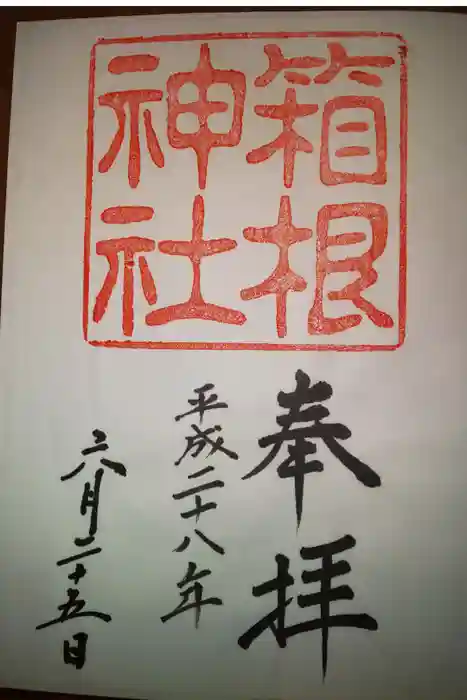 箱根
神社
奉拝
平成二十八年
六月二十五日